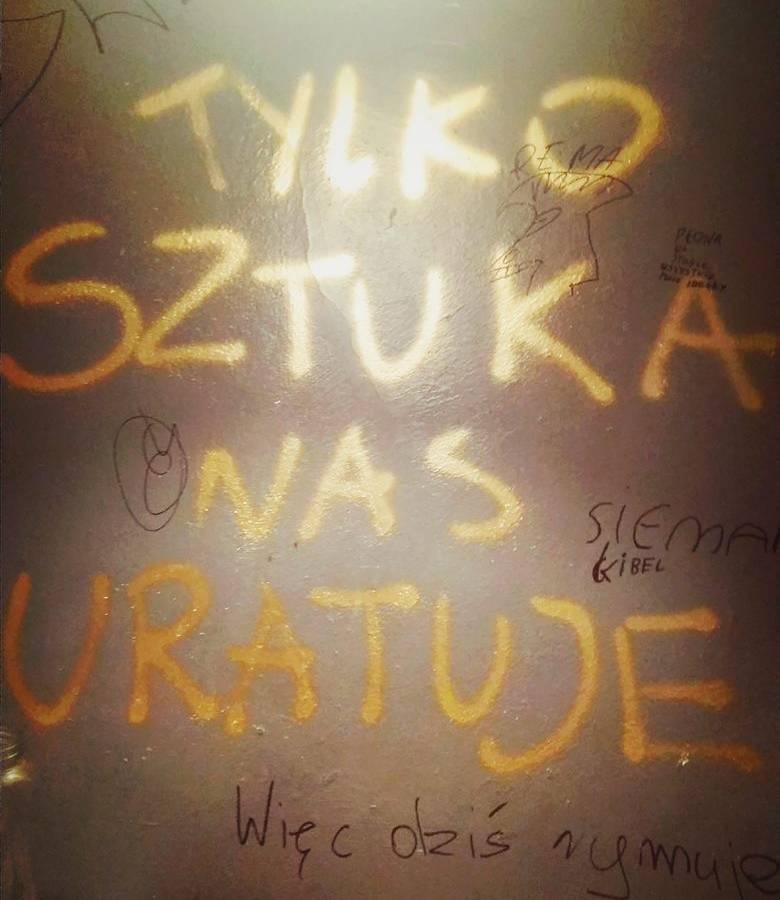 TYLKO
REMA
SZTUKA
PŁONĄ
NAS
SIEMA
KIBEL
URATUJE
Więc dziś rymuje